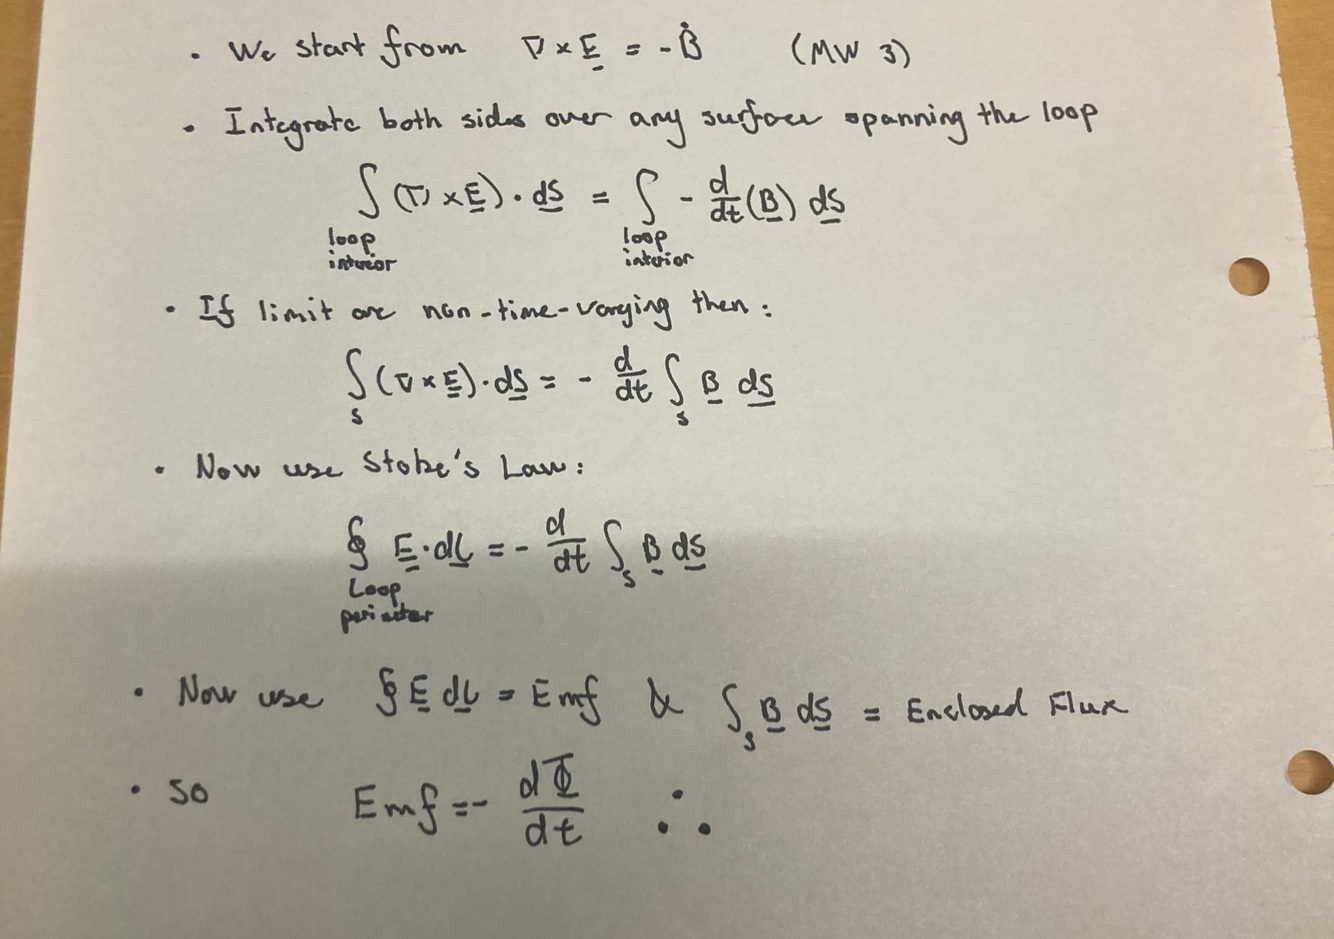 • We start from ∇ × E = - Ḃ (MW 3)
• Integrate both sides over any surface spanning the loop
∫ (∇ × E) · dS = ∫ - d/dt (B) dS
loop interior loop interior
• If limit are non-time-varying then:
∫s (∇ × E) · dS = - d/dt ∫s B dS
• Now use Stoke's Law:
∮ E · dl = - d/dt ∫s B dS
Loop
perimeter
• Now use ∮ E dl = Emf & ∫s B dS = Enclosed Flux
• So Emf = - dΦ/dt ∴